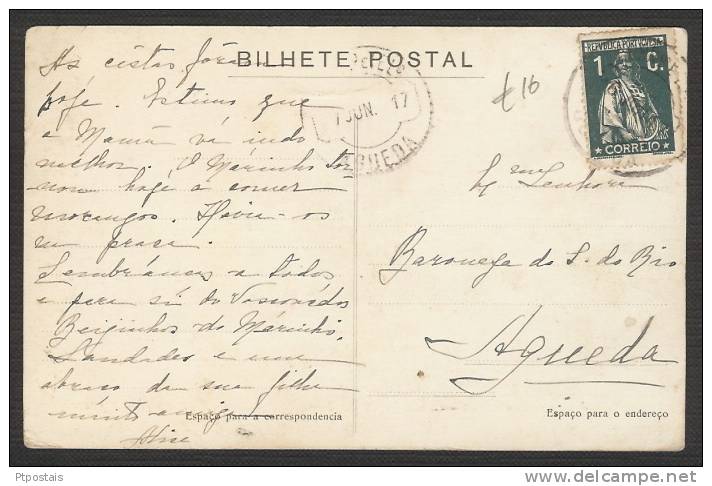 BILHETE POSTAL
As cestas fôram
hoje. Estimo que
a Mamã vá indo
melhor. O Marinho tor-
nou hoje a comer
morangos. Havia-os
na praça.
Lembranças a todos
e para si do
Beijinhos do Márinho.
Saudades e um
abraço da sua filha
muito amiga
Alice
7 JUN. 17
AGUEDA
€16
REPUBLICA PORTUGUESA
1 C.
CORREIO
Ex.ma Senhora
Baroneza do S. do Rio
Agueda
Espaço para a correspondencia
Espaço para o endereço
Ptpostais
delcampe.net